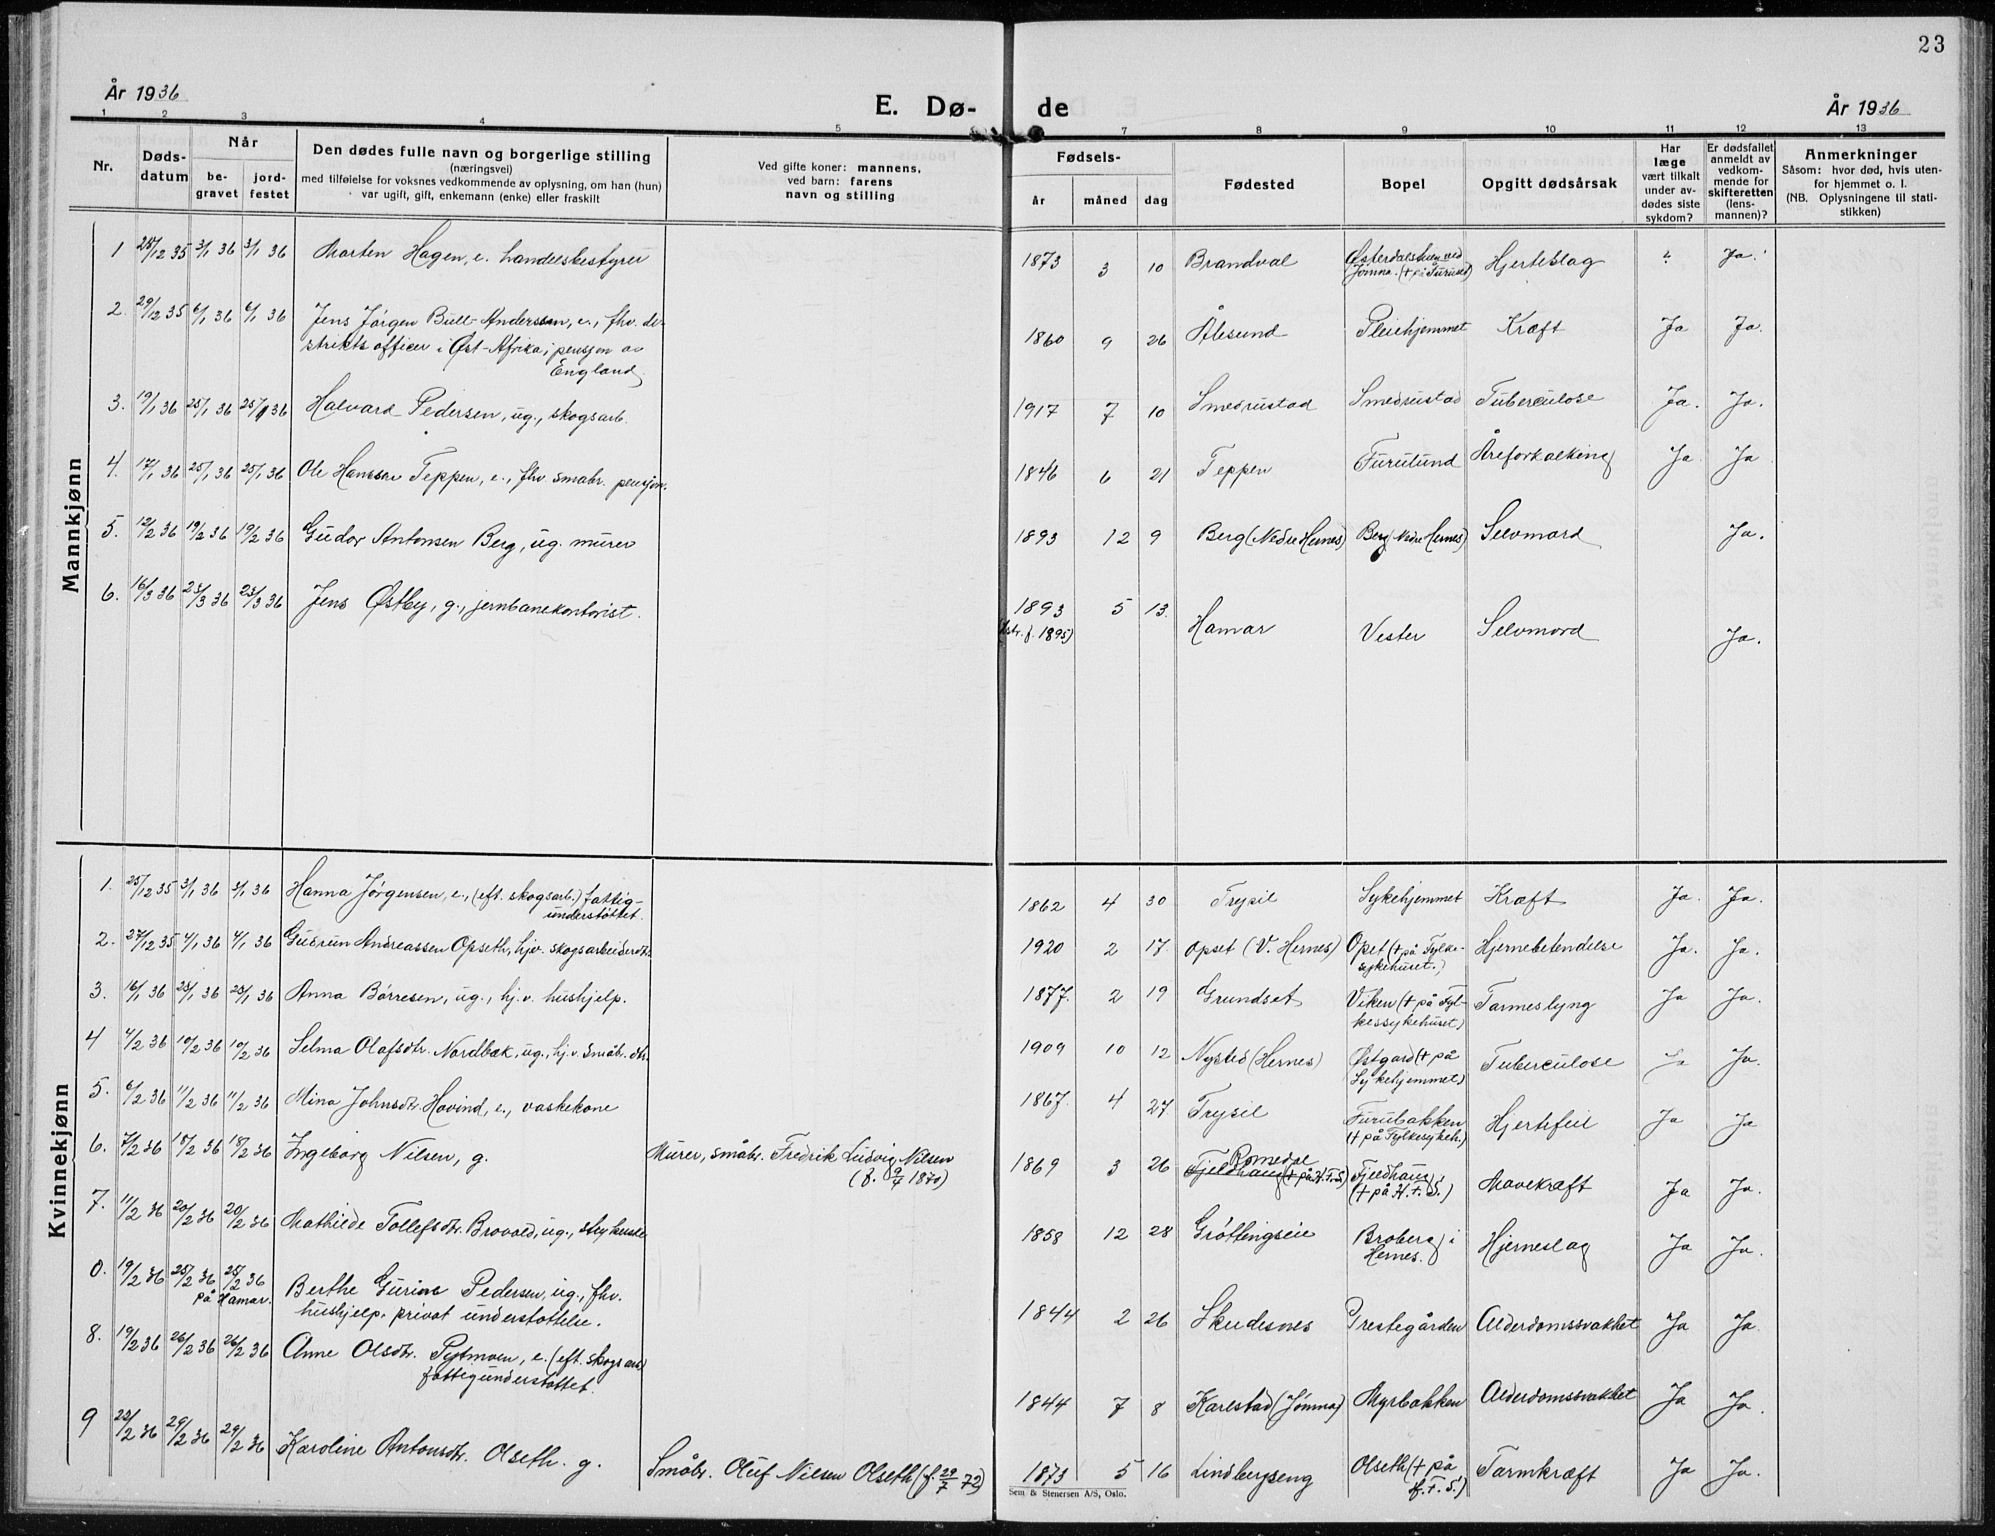 23
År 1936
E. Dø-
de
År 1936
1 2 3 4 5 7 8 9 10 11 12 13
Nr.
Døds-
datum
Når
be-
gravet
jord-
festet
Den dødes fulle navn og borgerlige stilling
(næringsvei)
med tilføielse for voksnes vedkommende av oplysning, om han (hun)
var ugift, gift, enkemann (enke) eller fraskilt
Ved gifte koner: mannens,
ved barn: farens
navn og stilling
Fødsels-
år måned dag
Fødested
Bopel
Opgitt dødsårsak
Har
læge
vært tilkalt
under av-
dødes siste
sykdom?
Er dødsfallet
anmeldt av
vedkom-
mende for
skifteretten
(lens-
mannen)?
Anmerkninger
Såsom: hvor død, hvis uten-
for hjemmet o. l.
(NB. Oplysningene til stati-
stikken)
Mannkjønn
1 28/12 35 3/1 36 3/1 36 Marten Hagen, e. handelsbestyrer 1873 3 10 Brandval Østerdalsheim ved Hjerteslag Ja.
Jømna. (+ i Furuset)
2. 29/12 35 6/1 36 6/1 36 Jens Jørgen Bull-Anderssen, e., fhv. di- 1860 9 26 Ålesund Pleiehjemmet Kræft Ja Ja.
strikts officer i Øst-Afrika, pensjon av
England
3. 19/1 36 25/1 36 25/1 36 Halvard Pedersen, ug., skogsarb. 1917 7 10 Smedrustad Smedrustad Tuberculose Ja. Ja.
4. 17/1 36 25/1 36 25/1 36 Ole Hanssen Teppen, e., fhv. småbr. pensjon. 1846 6 21 Teppen Furulund Åreforkalking Ja Ja
5. 12/2 36 19/2 36 19/2 36 Gudor Antonsen Berg, ug. murer 1893 12 9 Berg (Nedre Hernes) Berg (Nedre Hernes) Selvmord Ja.
6. 16/3 36 23/3 36 23/3 36 Jens Østby, g., jernbanekontorist. 1893 5 13. Hamar Vester Selvmord Ja.
f. 1895)
Kvinnekjønn
1. 25/12 35 3/1 36 3/1 36 Hanna Jørgensen, e., (eft. skogsarb.) fattig- 1862 4 30 Trysil Sykehjemmet Kræft Ja. Ja.
understøttet.
2. 27/12 35 4/1 36 4/1 36 Gudrun Andreassen Opseth, hjv. skogsarbeiderdtr. 1920 2 17. Opset (V. Hernes) Opet (+ på Fylke- Hjernebetendelse Ja. Ja.
sykehuset.)
3. 16/1 36 23/1 36 23/1 36 Anna Børresen, ug., hj.v. hushjelp. 1877. 2 19 Grundset Viken (+ på Fyl- Tarmeslyng Ja Ja.
kessykehuset)
4 4/2 36 10/2 36 10/2 36 Selma Olafsdtr. Nordbæk, ug., hj.v. småbr. dtr. 1909 10 12 Nysted (Hernes) Østgard (+ på Tuberculose Ja Ja.
Sykehjemmet)
5. 6/2 36 11/2 36 11/2 36 Mina Johnsdtr. Hovind, e., vaskekone 1867. 4 27. Trysil Furubakken Hjertefeil Ja Ja
(+ på Fylkesykeh.)
6. 7/2 36 18/2 36 18/2 36 Ingeborg Nilsen, g. Murer, småbr. Fredrik Ludvig Nilsen 1869 3 26 Romedal Fjeldhaug Mavekræft Ja Ja.
(f. 9/7 1870) Fjeldhaug (+ på H.F.S) (+ på H. F. S.)
7. 11/2 36 20/2 36 20/2 36 Mathilde Tollefsdtr. Brovold, ug., sykerske 1858 12 28 Grøttingseie Broberg i Hjerneslag Ja Ja.
Hernes.
0. 19/2 36 25/2 36 25/2 36 Berthe Gurine Pedersen, ug., fhv. 1844 2 26 Skudesnes Prestegården Alderdomssvakhet Ja Ja.
på Hamar. hushjelp. privat understøttelse.
8. 19/2 36 26/2 36 26/2 36 Anne Olsdtr. Pytmoen, e. (eft. skogsarb) 1844 7 8 Karlstad (Jømna) Myrbakken Alderdomssvakhet Ja Ja.
fattigunderstøttet.
9 23/2 36 29/2 36 29/2 36 Karoline Antonsdtr. Olseth. g. Småbr. Oluf Nilsen Olseth (f. 29/7 72) 1873 5 16 Lindbergseng Olseth (+ på Tarmkræft Ja Ja.
H. F. S.)
Sem & Stenersen A/S, Oslo.